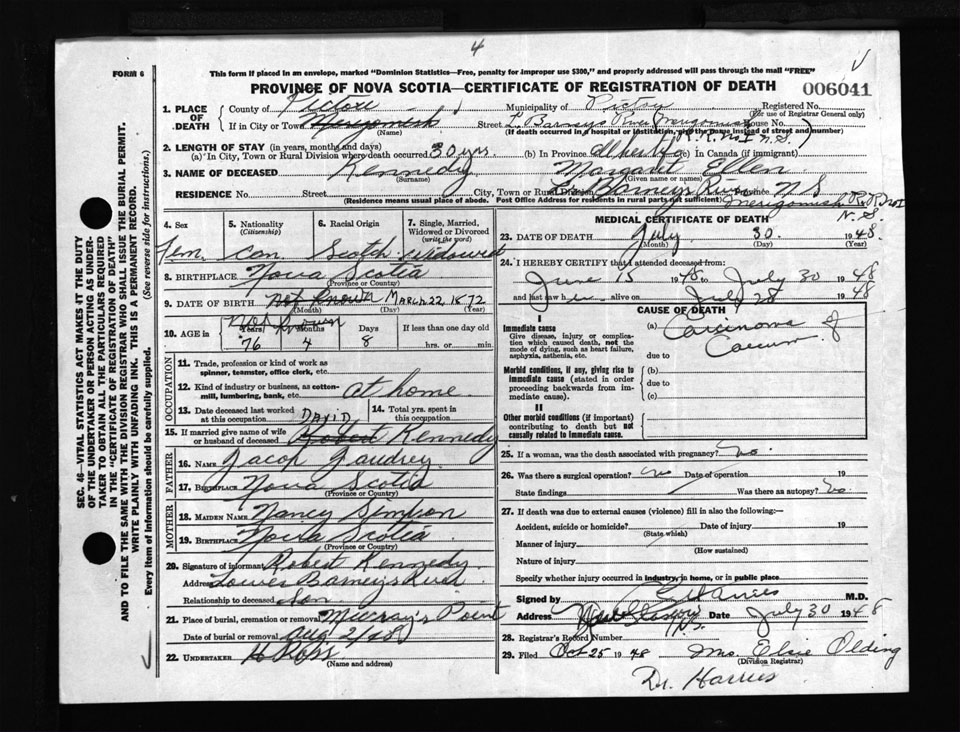 4
FORM 6
This form if placed in an envelope, marked "Dominion Statistics—Free, penalty for improper use $300," and properly addressed will pass through the mail "FREE"
PROVINCE OF NOVA SCOTIA—CERTIFICATE OF REGISTRATION OF DEATH
006041
1. PLACE OF DEATH
County of Pictou
Municipality of Pictou
Registered No.
(For use of Registrar General only)
If in City or Town Merigomish
(Name)
Street L Barneys River Merigomish House No.
(If death occurred in a hospital or institution, give the name instead of street and number)
R.R. No I N.S.)
2. LENGTH OF STAY (in years, months and days)
(a) In City, Town or Rural Division where death occurred 30 yrs. (b) In Province all her life (c) In Canada (if immigrant)
3. NAME OF DECEASED Kennedy Margaret Ellen
(Surname) (Given name or names)
RESIDENCE No. Street City, Town or Rural Division L. Barneys River Province N S
(Residence means usual place of abode. Post Office Address for residents in rural parts not sufficient) Merigomish R.R. No I
N.S.
4. Sex Fem.
5. Nationality (Citizenship) Can.
6. Racial Origin Scotch
7. Single, Married, Widowed or Divorced (write the word) Widowed
8. BIRTHPLACE Nova Scotia
(Province or Country)
9. DATE OF BIRTH Not known MARCH 22 1872
(Month) (Day) (Year)
10. AGE in Not known
Years Months Days If less than one day old
76 4 8 hrs. or min.
OCCUPATION
11. Trade, profession or kind of work as spinner, teamster, office clerk, etc.
12. Kind of industry or business, as cotton-mill, lumbering, bank, etc. at home
13. Date deceased last worked at this occupation
14. Total yrs. spent in this occupation
DAVID
15. If married give name of wife or husband of deceased Robert Kennedy
FATHER
16. NAME Jacop Gaudrey
17. BIRTHPLACE Nova Scotia
(Province or Country)
MOTHER
18. MAIDEN NAME Nancy Simpson
19. BIRTHPLACE Nova Scotia
(Province or Country)
20. Signature of informant Robert Kennedy
Address Lower Barneys River
Relationship to deceased Son
21. Place of burial, cremation or removal Murray's Point
Date of burial or removal Aug 2/48
22. UNDERTAKER H Ross
(Name and address)
MEDICAL CERTIFICATE OF DEATH
23. DATE OF DEATH July 30. 1948.
(Month) (Day) (Year)
24. I HEREBY CERTIFY that I attended deceased from:
June 15 1948 to July 30 1948
and last saw her alive on July 28 1948
CAUSE OF DEATH
I
Immediate cause
Give disease, injury or complication which caused death, not the mode of dying, such as heart failure, asphyxia, asthenia, etc.
(a) Carcinoma of
Caecum
due to
Morbid conditions, if any, giving rise to immediate cause (stated in order proceeding backwards from immediate cause).
(b)
due to
(c)
II
Other morbid conditions (if important) contributing to death but not causally related to immediate cause.
25. If a woman, was the death associated with pregnancy? no
26. Was there a surgical operation? no Date of operation 19
State findings Was there an autopsy? no
27. If death was due to external causes (violence) fill in also the following:—
Accident, suicide or homicide? Date of injury 19
(State which)
Manner of injury
(How sustained)
Nature of injury
Specify whether injury occurred in industry, in home, or in public place
Signed by M.D.
Address New Glasgow N.S. Date July 30 1948
28. Registrar's Record Number
29. Filed Oct 25 1948 Mrs. Elsie Olding
(Division Registrar)
Dr. Harries
SEC. 46—VITAL STATISTICS ACT MAKES IT THE DUTY
OF THE UNDERTAKER OR PERSON ACTING AS UNDER-
TAKER TO OBTAIN ALL THE PARTICULARS REQUIRED
IN THE "CERTIFICATE OF REGISTRATION OF DEATH"
AND TO FILE THE SAME WITH THE DIVISION REGISTRAR WHO SHALL ISSUE THE BURIAL PERMIT.
WRITE PLAINLY WITH UNFADING INK. THIS IS A PERMANENT RECORD.
Every item of information should be carefully supplied. (See reverse side for instructions.)